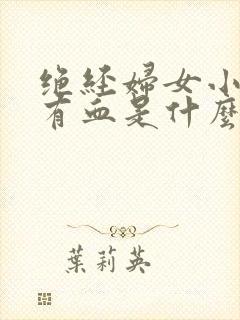 绝经婦女小
有血是什麼
葉莉英